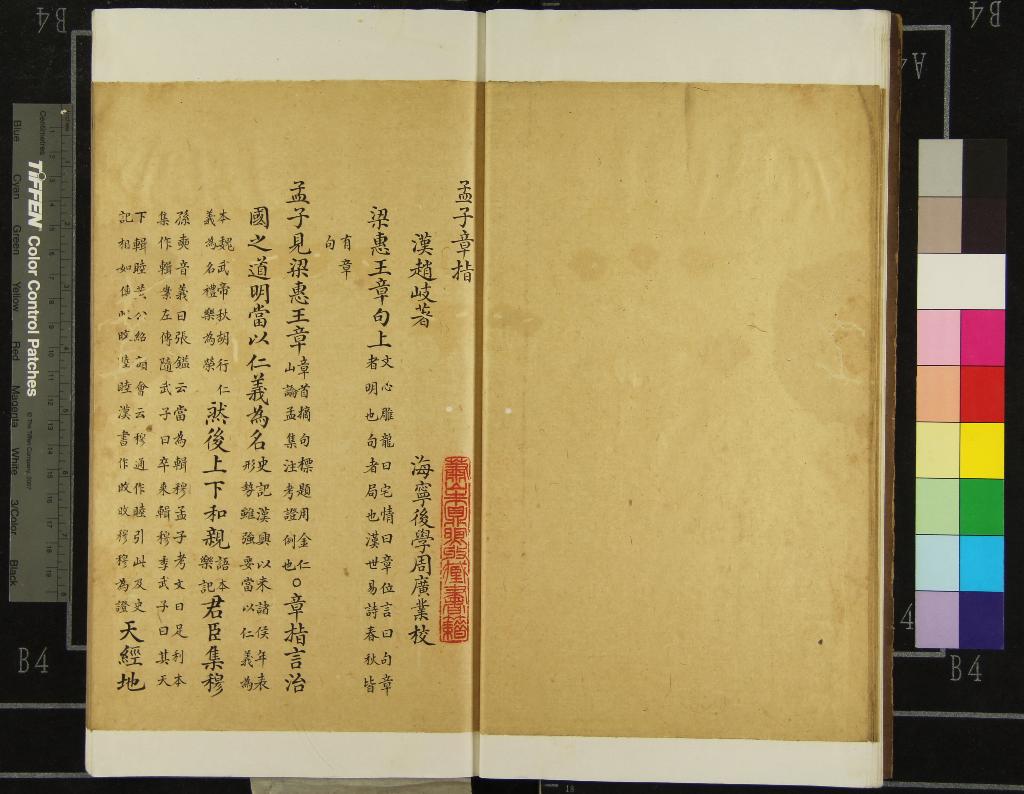 孟子章指
漢趙岐著 海寧後學周廣業校
梁惠王章句上文心雕龍曰宅情曰章位言曰句章
者明也句者局也漢世易詩春秋皆
有章
句
孟子見梁惠王章章首摘句標題用金仁
山論孟集注考證例也○章指言治
國之道明當以仁義為名史記漢興以來諸侯年表
形勢雖強要當以仁義為
本魏武帝秋胡行仁
義為名禮樂為榮然後上下和親語本
樂記君臣集穆
孫奭音義曰張鎰云當為輯穆孟子考文曰足利本
集作輯業左傳隨武子曰卒乘輯穆季武子曰其天
下輯睦
記相如傳
會云穆通作睦引此及史
睦漢書作
穆穆為證天經地
TIFFEN Color Control Patches
© The Tiffen Company, 2007
Centimetres
Blue
Cyan
Green
Yellow
Red
Magenta
White
3/Color
Black
B4
B4
B4
B4
A4